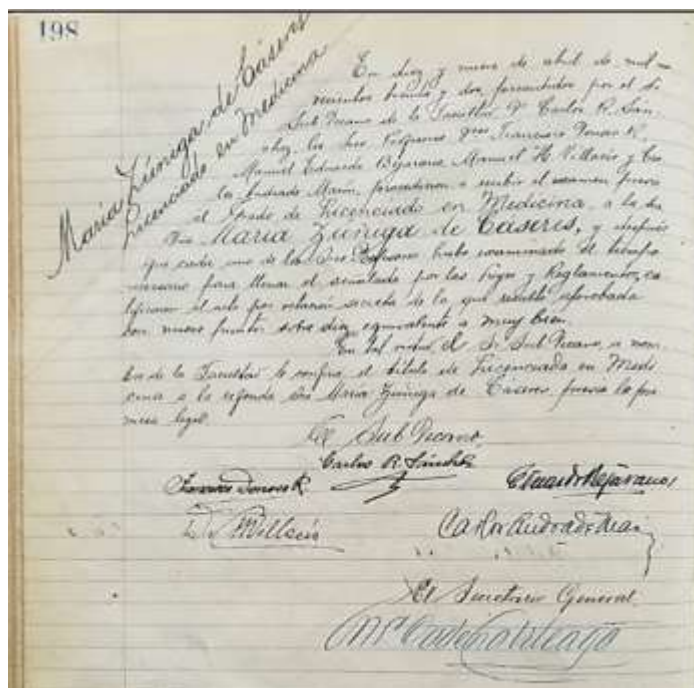 198
María Zúniga de Cáseres
Licenciado en Medicina
En diez y nueve de abril de mil
novecientos treinta y dos, presididos por el Sr
Sub Decano de la Facultad Dr Carlos R. Sán-
chez, los Sres Profesores Dres Francisco Donoso R.
Manuel Eduardo Bejarano, Manuel H. Villacís y Car
los Andrade Marín, procedieron a recibir el examen previo
al Grado de Licenciado en Medicina, a la
Sra María Zúniga de Cáseres, y después
que cada uno de los Sres Profesores hubo examinado el tiempo
necesario para llenar el señalado por las leyes y Reglamentos, ca
lificaron el acto por votación secreta de la que resultó aprobada
con nueve puntos sobre diez equivalente a muy bien.
En tal virtud el Sr Sub Decano, a nom
bre de la Facultad le confirió el título de Licenciado en Medi
cina a la referida Sra María Zúniga de Cáseres, previa la pro
mesa legal.
El Sub Decano,
Carlos R. Sánchez
Francisco Donoso R. Eduardo Bejarano
Villacís Carlos Andrade Marín
El Secretario General.